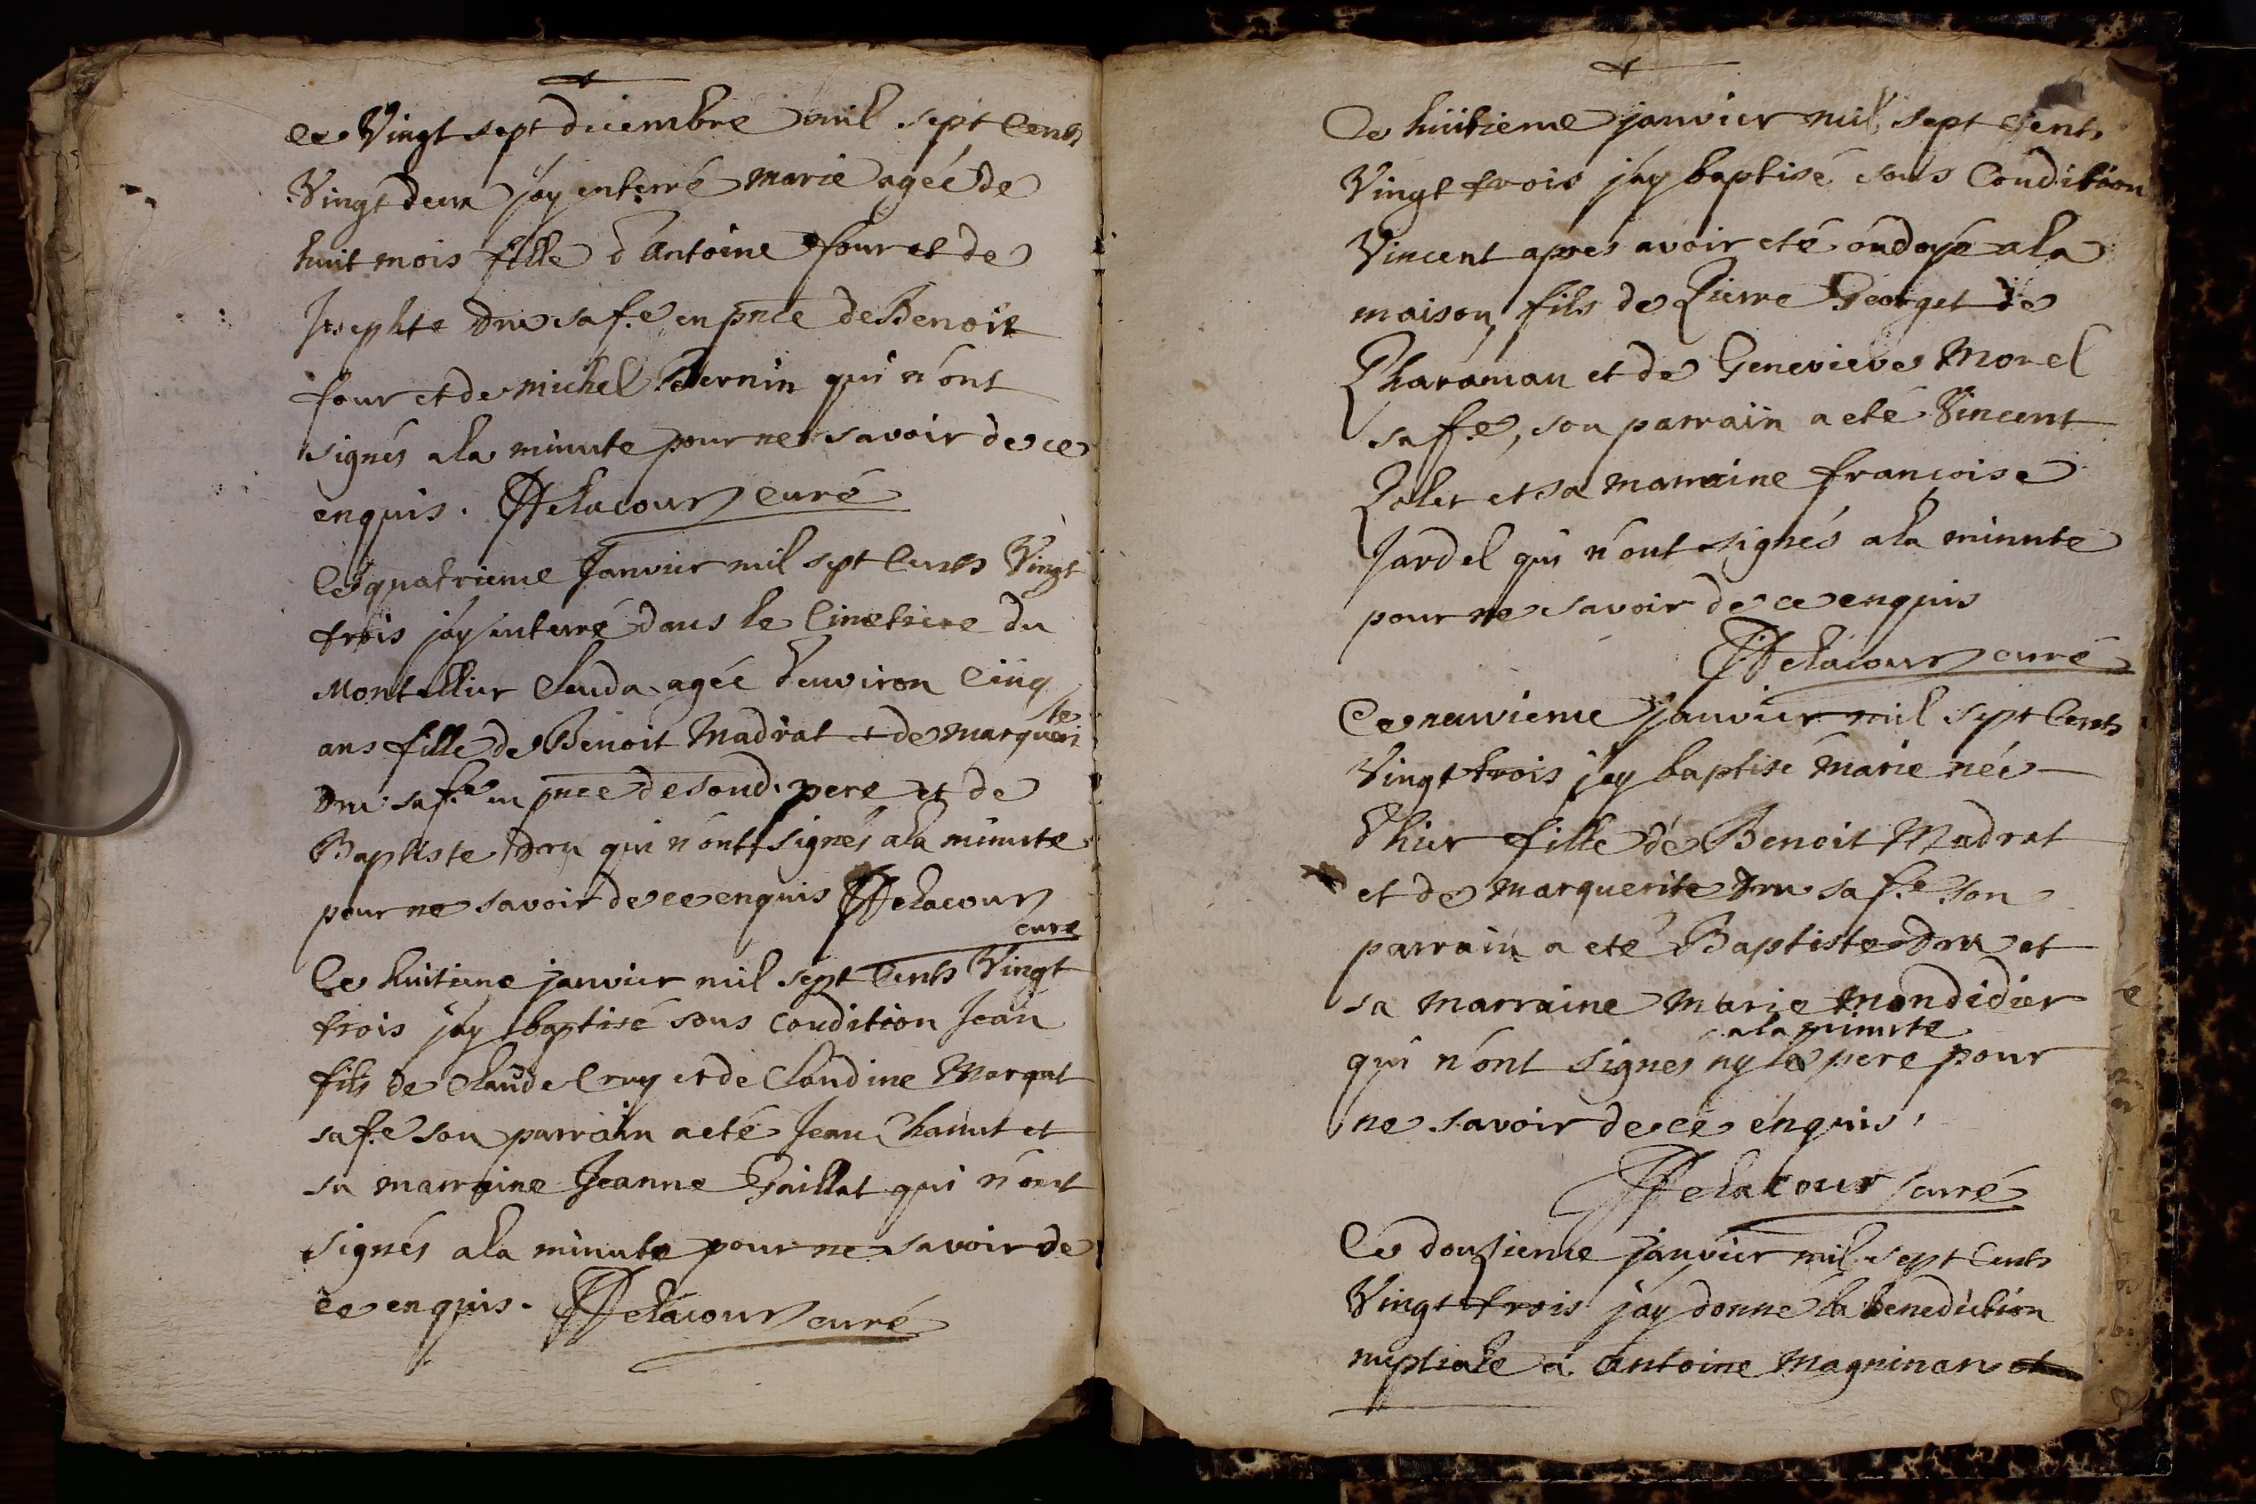 Ce Vingt sept decembre mil sept Cents
Vingt deux j'ay enterré marie agée de
huit mois fille d'antoine four et de
Josephte Dru sa f.e en pnce de Benoit
four et de michel Pernin qui n'ont
signés a la minute pour ne savoir de ce
enquis. Delacour curé
Ce quatrieme Janvier mil sept Cents Vingt
trois j'ay enterré dans le Cimetiere du
Montellier Clauda agée d'environ Cinq
ans fille de Benoit Madrat et de marguerite
Dru sa f.e en pnce de sond. pere et de
Baptiste Dru qui n'ont signés a la minute
pour ne savoir de ce enquis Delacour
curé
Ce huitieme janvier mil sept Cents Vingt
trois j'ay baptisé sous condition Jean
fils de Claude Cruy et de Claudine Margat
sa f.e son parrain a eté Jean Chanut et
sa marraine Jeanne Gaillat qui n'ont
signés a la minute pour ne savoir de
ce enquis. Delacour curé
Ce huitieme janvier mil sept Cents
Vingt trois j'ay baptisé sous Condition
Vincent apres avoir eté ondoyé a la
maison, fils de Pierre Georget de
Pharaman et de Genevieve Morel
sa ff.e, son parrain a eté Vincent
Polet et sa marraine francoise
Jardel qui n'ont signés a la minute
pour ne savoir de ce enquis
Delacour curé
Ce neuvieme janvier mil sept Cents
Vingt trois j'ay baptisé Marie née
d'hier fille de Benoit Madrat
et de marguerite Dru sa f.e son
parrain a eté Baptiste Dru et
sa marraine Marie mondidier
a la minute
qui n'ont signes ny le pere pour
ne savoir de ce enquis,
Delacour curé
Ce douzieme janvier mil sept Cents
Vingt trois j'ay donné la benediction
nuptiale a antoine magninan